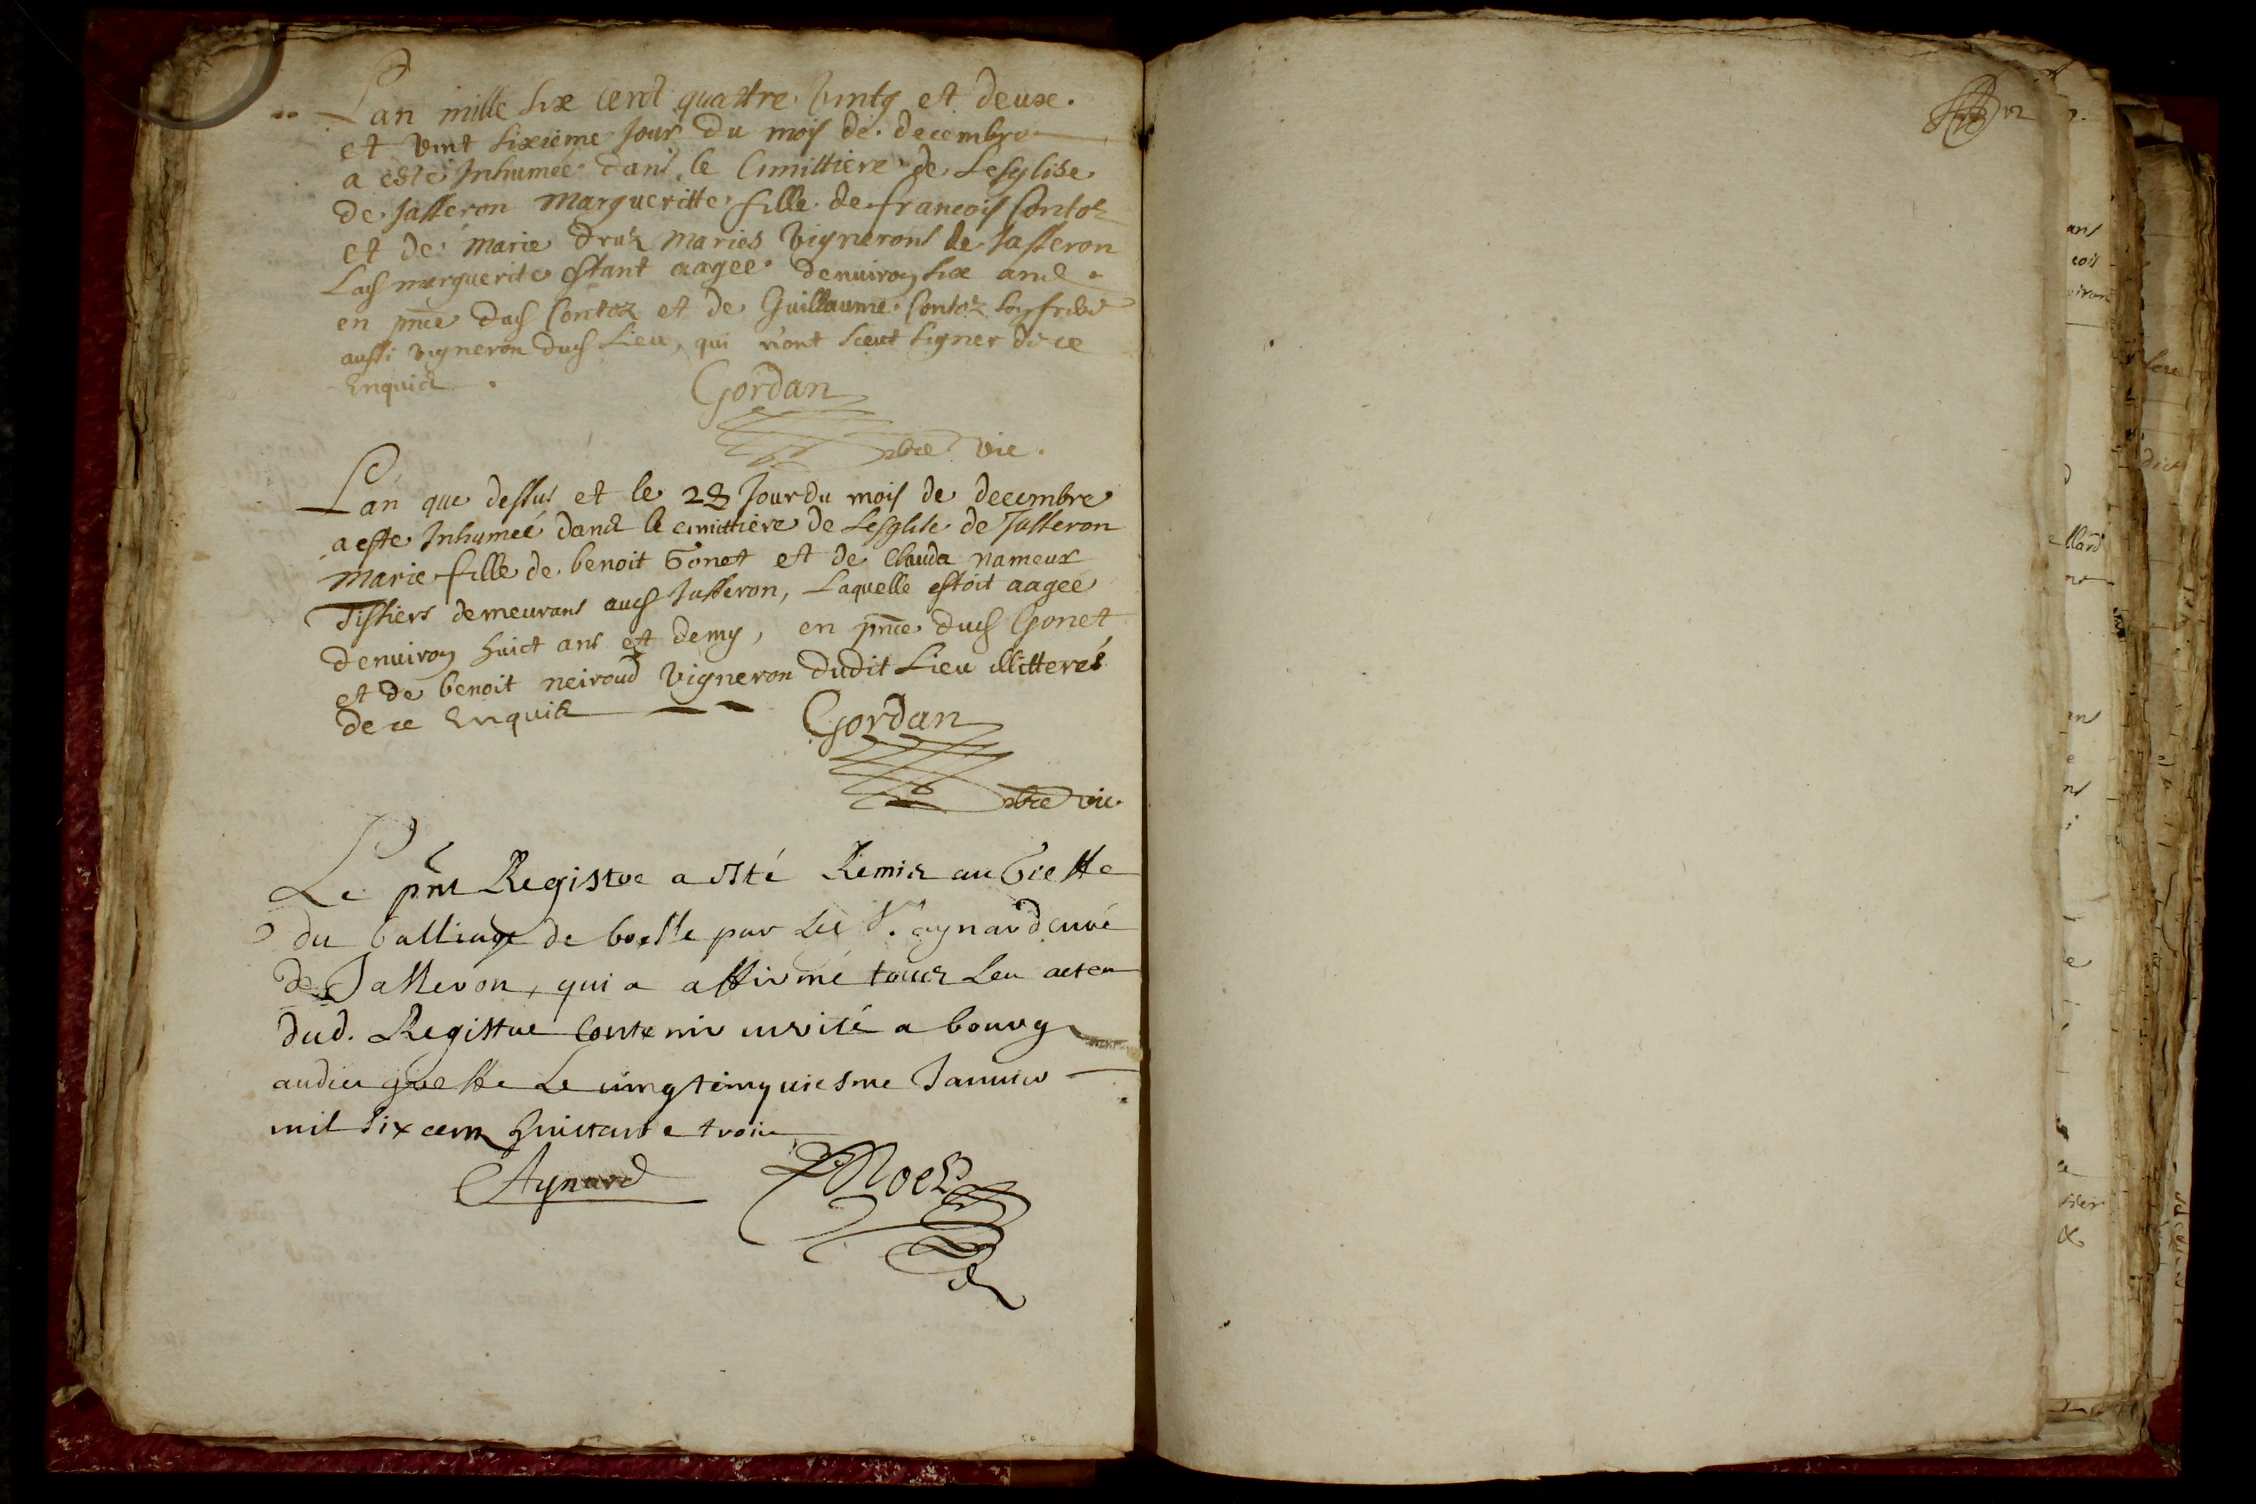 Lan mille six cent quattre vintg et deux.
et vint sixieme Jour du mois de decembre
a esté Inhumée dans le Cimittiere de Lesglise
de Jasseron Margueritte fille de francois Contoz
et de Marie Druz Maries Vignerons de Jasseron
Lad marguerite estant aagée denuiron six ans
en pnce dud Contoz et de Guillaume Contoz son frere
aussi vigneron dud Lieu, qui n'ont sceut signer de ce
Enquis.
Gordan
pbre vic.
Lan que dessus et le 28 Jour du mois de decembre
a este Inhumée dans le cimittiere de Lesglise de Jasseron
Marie fille de benoit Gonet et de Clauda nameur
Tissiers demeurans aud Jasseron, Laquelle estoit aagée
denuiron huict ans et demy, en pnce dud Gonet
et de benoit neiroud Vigneron dudit Lieu illitterés
de ce Enquis
Gordan
pbre vic.
Le pnt Registre a esté Remis au Greffe
du balliage de bresse par Le Sr. aynard curé
de Jasseron, qui a affirmé tous Les actes
dud. Registre Contenir verité a bourg
audit greffe Le vingt cinquiesme Januier
mil six cens huictante trois
Aynard